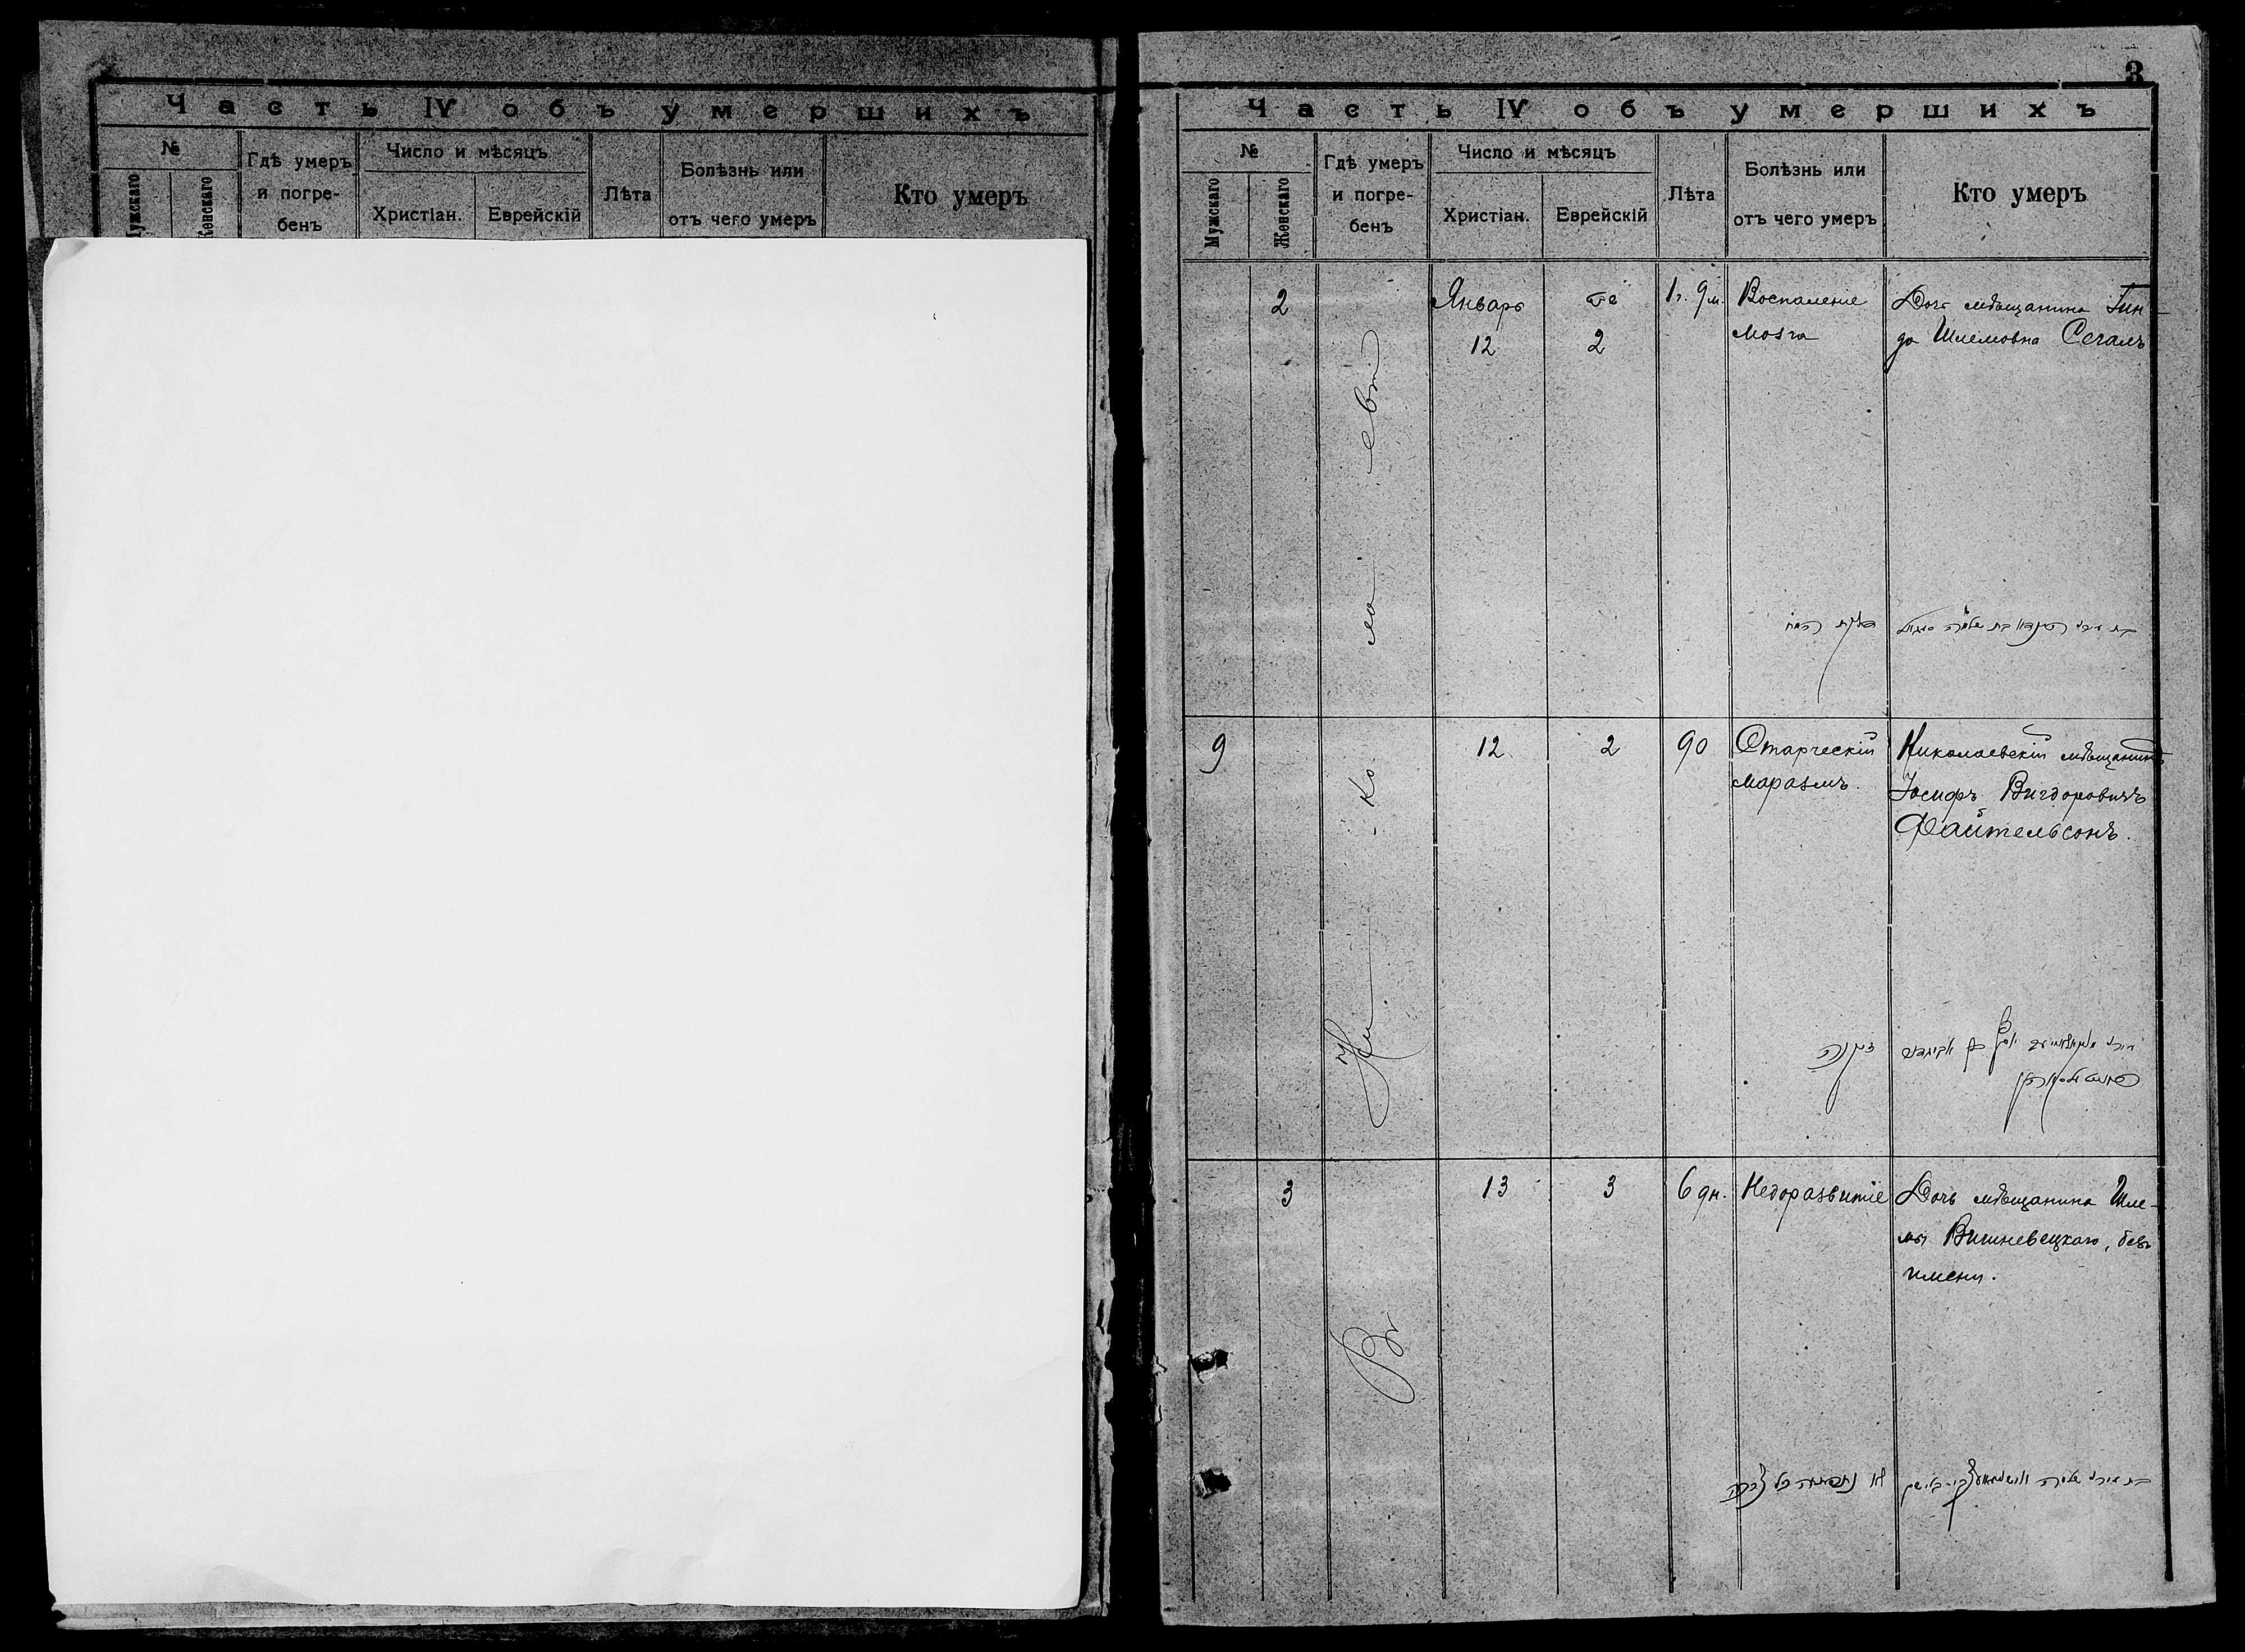 Часть IV объ умершихъ
№
Мужскаго
Женскаго
Гдѣ умеръ
и погре-
бенъ
Число и мѣсяцъ
Христіан.
Еврейскій
Лѣта
Болѣзнь или
отъ чего умеръ
Кто умеръ
3
Часть IV объ умершихъ
№
Мужскаго
Женскаго
Гдѣ умеръ
и погре-
бенъ
Число и мѣсяцъ
Христіан.
Еврейскій
Лѣта
Болѣзнь или
отъ чего умеръ
Кто умеръ
2
Январь
12
2
1 г. 9 м.
Воспаленіе
мозга
Дочь мѣщанина Гин-
да Шлемовна Сегалъ
Въ Николаевѣ
9
12
2
90
Старческій
маразмъ.
Николаевскій мѣщанинъ
Іосифъ Вигдоровичъ
Файтельсонъ.
זקנה
3
13
3
6 дн.
Недоразвитіе
Дочь мѣщанина Шле-
мы Вишневецкаго, безъ
имени.